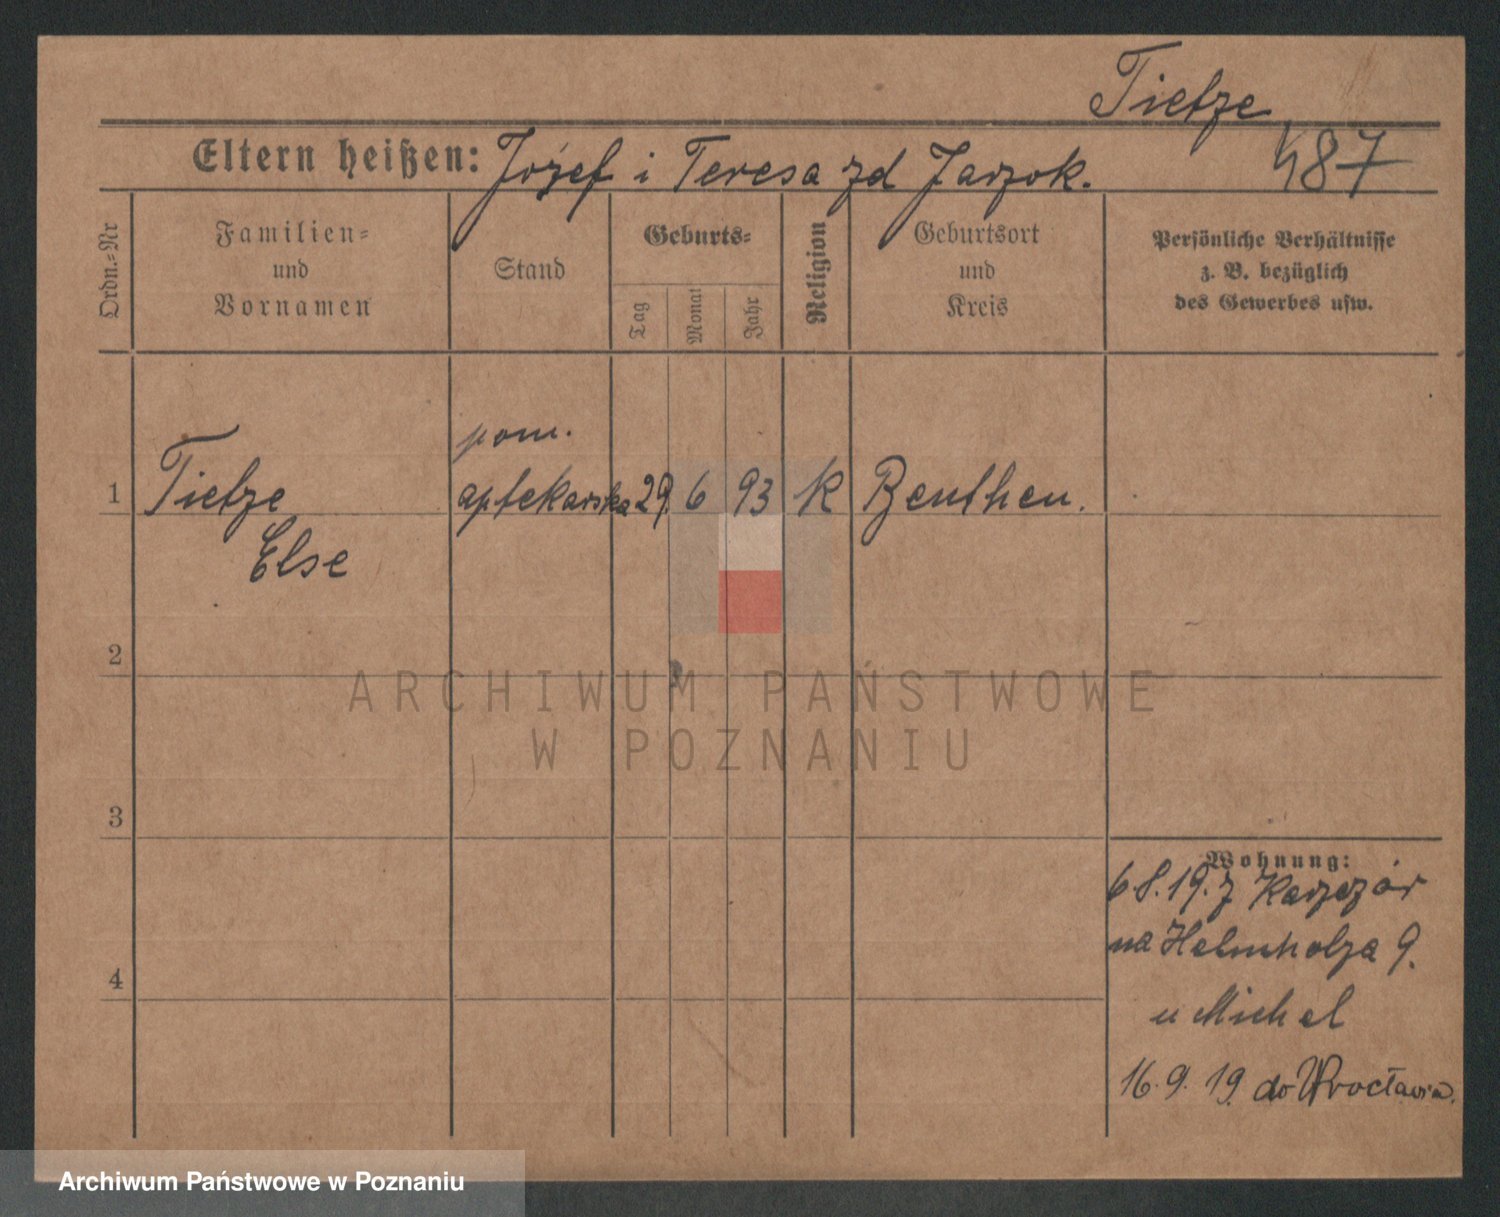 Tietze
Eltern heißen: Józef i Teresa zd Jarzok.
487
Ordn.-Nr
Familien-
und
Vornamen
Stand
Geburts-
Tag
Monat
Jahr
Religion
Geburtsort
und
Kreis
Persönliche Verhältnisse
z. B. bezüglich
des Gewerbes usw.
pom.
1 Tietze aptekarska 29. 6 93 K Beuthen.
Else
2
3
4
Wohnung:
6.8.19. z
na Helmholza 9.
u Michel
16.9.19. do Wrocławia.
ARCHIWUM PAŃSTWOWE
W POZNANIU
Archiwum Państwowe w Poznaniu